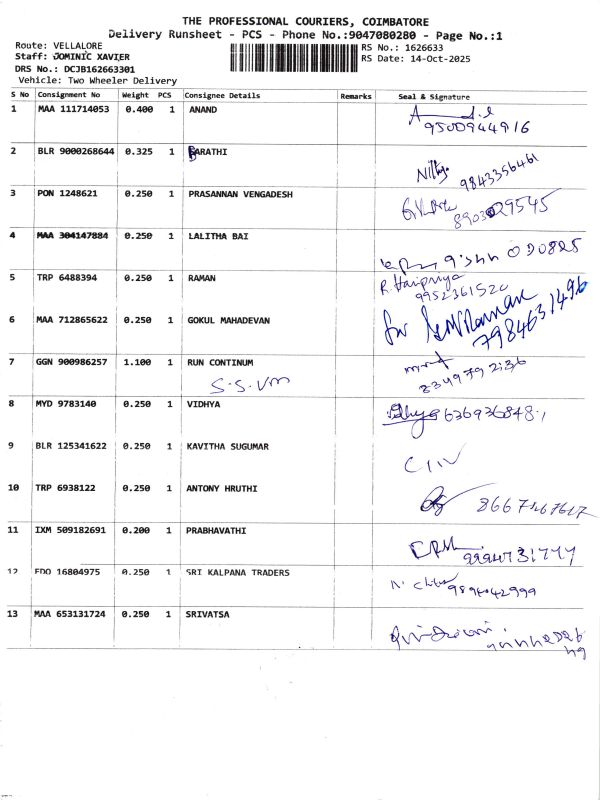 THE PROFESSIONAL COURIERS, COIMBATORE
Delivery Runsheet - PCS - Phone No.:9047080280 - Page No.:1
Route: VELLALORE RS No.: 1626633
Staff: DOMINIC XAVIER RS Date: 14-Oct-2025
DRS No.: DCJB162663301
Vehicle: Two Wheeler Delivery
S No Consignment No Weight PCS Consignee Details Remarks Seal & Signature
1 MAA 111714053 0.400 1 ANAND
9500944916
2 BLR 9000268644 0.325 1 BARATHI
9843356461
3 PON 1248621 0.250 1 PRASANNAN VENGADESH
8903029545
4 MAA 304147884 0.250 1 LALITHA BAI
5 TRP 6488394 0.250 1 RAMAN
R. Haripriya
9952361520
6 MAA 712865622 0.250 1 GOKUL MAHADEVAN
7984631496
7 GGN 900986257 1.100 1 RUN CONTINUM
S.S.VM
8 MYD 9783140 0.250 1 VIDHYA
9 BLR 125341622 0.250 1 KAVITHA SUGUMAR
10 TRP 6938122 0.250 1 ANTONY HRUTHI
11 IXM 509182691 0.200 1 PRABHAVATHI
12 EDO 16804975 0.250 1 SRI KALPANA TRADERS
9894042999
13 MAA 653131724 0.250 1 SRIVATSA